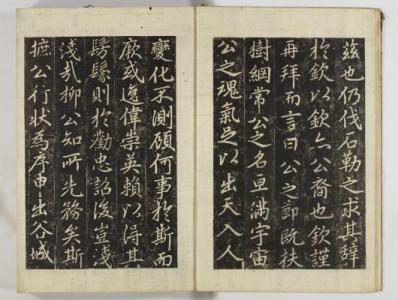 茲也仍伐石勒之求其辭
於欽以欽亦公裔也欽謹
再拜而言曰公之節既扶
樹綱常公之名亘滿宇宙
公之魂氣足以出天入人
變化不測顧何事於斯而
厥或逸偉崇英賴以得其
髣髴則於勸忠詔後豈淺
淺哉柳公知所先務矣斯
摭公行状為序由出谷城